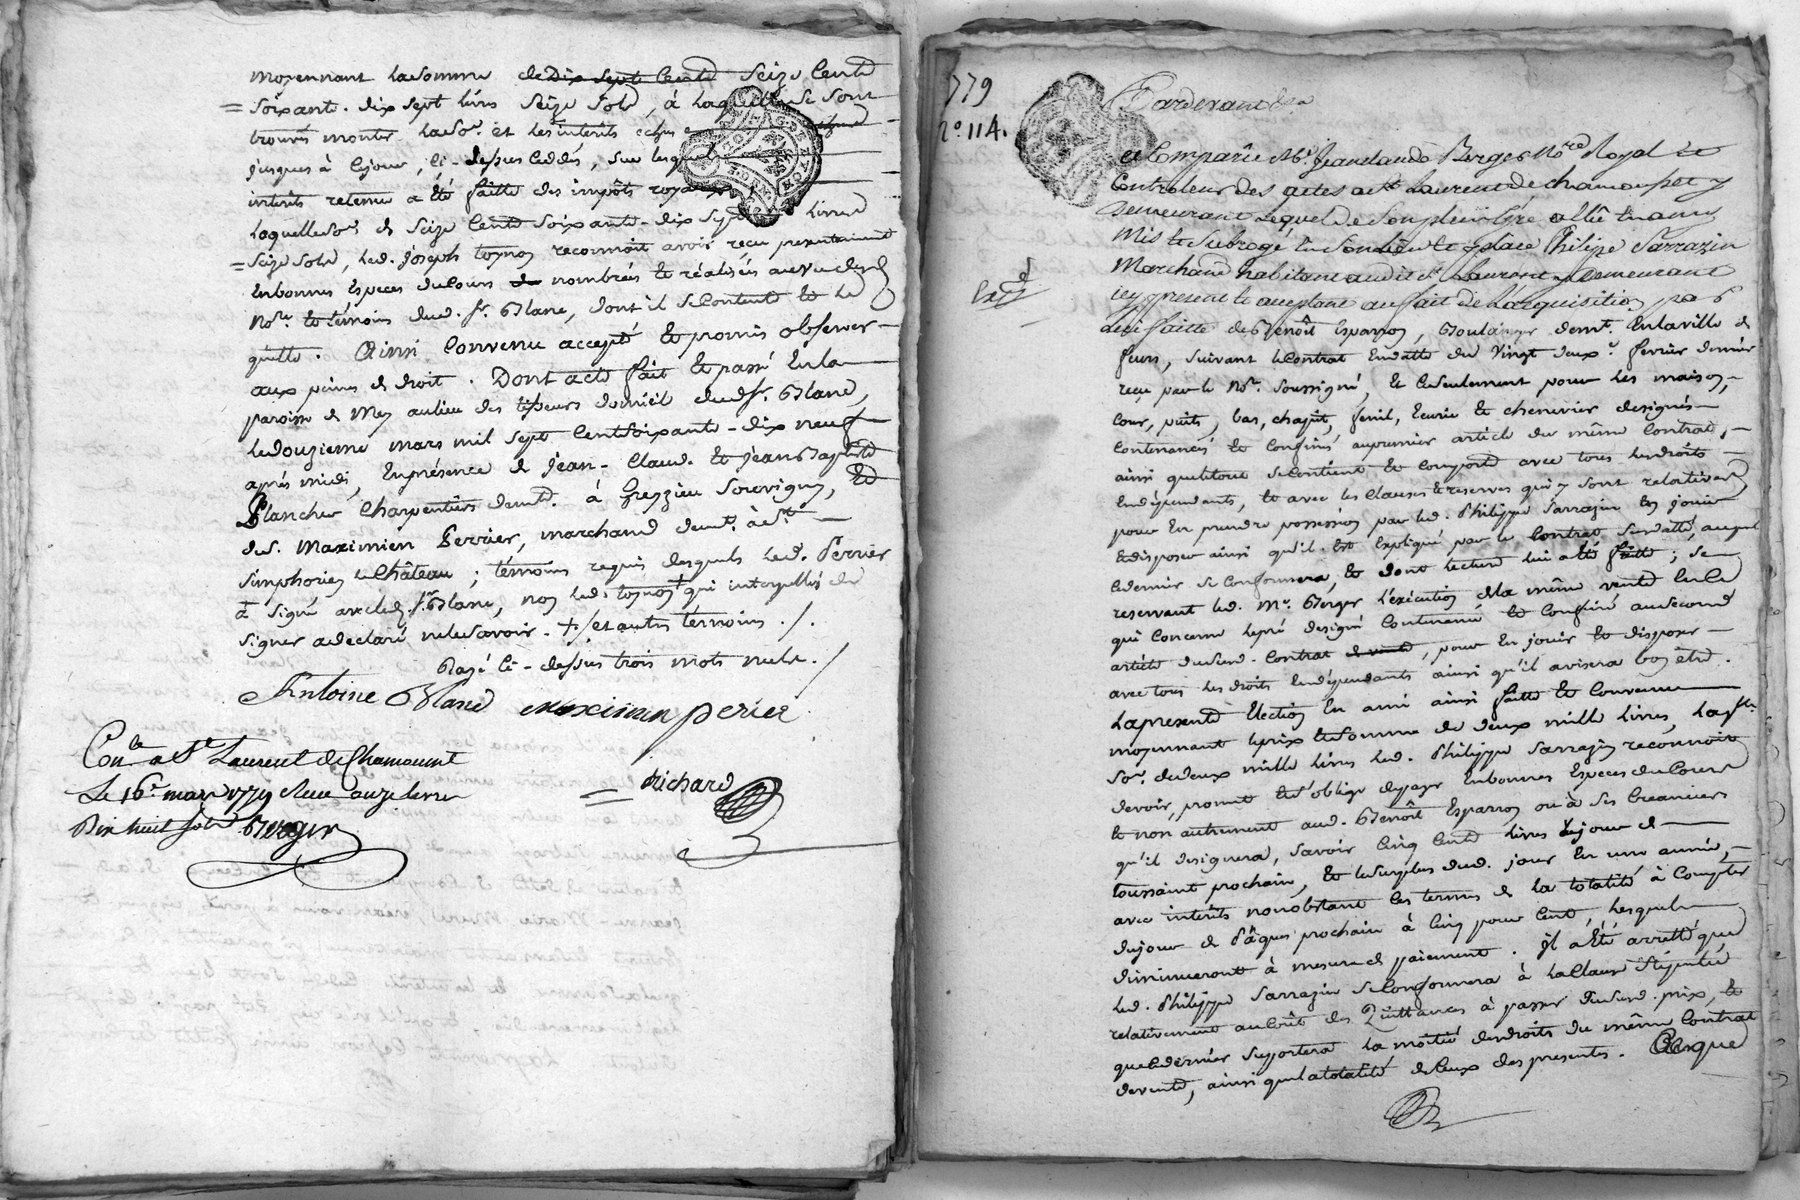 moyennant la somme de Dix sept Cents Seize Cents
= Soixante-dix sept livres Seize Sols, à laquelle se sont
trouvés monter la so.e et les interêts échus
jusques à cejour, ci-dessus cedés, sur lesquels
intérêts retenue a été faitte des impôts royaux
laquelle so.e de Seize Cents Soixante-dix sept livres
= Seize Sols, led. joseph toynon reconnoît avoir reçu presentement
en bonnes Especes de Cours de nombrées et réalisées au vu desd.
No.re et témoins dud. Sr. Blanc, dont il se Contente et le
quitte. Ainsi Convenu accepté et promis observer
aux peines de droit. Dont acte fait et passé en la
paroisse de Mey au lieu des tisseurs domicil dud. Sr. Blanc,
le douzieme mars mil sept Cent Soixante-dix neuf
après midi, En présence de jean-Claud. et jean Baptiste
Blancher Charpentiers dem.ts à Grezzieu Souvigny, et
de S. Maximien Perrier, marchand dem.t à St.
Simphorien le Château; témoins requis desquels led. Perrier
a signé avec led. Sr. Blanc, non led. toynon + qui interpellés de
signer a declaré ne le savoir. +/ et autres témoins ./.
Rayé ci-dessus trois mots nuls./
Antoine Blanc maximien perier
Con.lé a St Laurent de Chamousset
Le 16e mars 1779 Reçu onze livres
Dix huit sols Berger
Richard
779
No. 114.
Pardevant &a
a Comparû Me. Jean Claude Berger No.re Royal et
Controleur des actes a St. Laurent de chamousset y
demeurant Lequel de Son plein Gré a élû en amy
Mis et Subrogé En Son lieu et place Philipe Sarrazin
Marchand habitant audit St. Laurent y demeurant
icy present et acceptant au fait de L'acquisition par
lui faitte de Benoît Esparron, Boulanger dem.t En la ville de
feurs, suivant le Contrat En datte du Vingt deux.e fevrier dernier
reçu par le No.re soussigné, Et ce seulement pour les maison,
Cour, puits, bas, chapit, fenil, Ecurie et chenevier designés
Contenancés et Confinés au premier article du même Contrat,
ainsi que le tout se Contient et comporte avec tous les droits
En dépendants, et avec les Clauses et reserves qui y sont relatives
pour En prendre possession par led. Philippe Sarrazin En jouir
et disposer ainsi qu'il Est Expliqué par le Contrat susdatté, auquel
ce dernier se Conformera, et dont lecture lui a été faitte; se
reservant led. Me. Berger l'exécution de la même vente En ce
qui Concerne le pré designé Contenancé et Confiné au second
article dudud. Contrat de vente, pour En jouir et disposer
avec tous les droits En dépendants ainsi qu'il avisera bon être.
La presente Election En ami ainsi faitte et Convenue
moyennant le prix et Somme de deux mille livres, laq.lle
So.e de deux mille livres led. Philippe Sarrazin reconnoit
devoir, promet et s'oblige de payer En bonnes Especes de Cours
et non autrement aud. Benoît Esparron ou à ses Creanciers
qu'il designera, savoir Cinq Cents livres le jour de
toussaint prochain, et le surplus dud. jour En une année,
avec intérêts nonobstant les termes de la totalité à Compter
du jour de Pâques prochain à Cinq pour Cent, lesquels
diminueront à mesure de paiement. Il a été arretté que
led. Philippe Sarrazin se Conformera à la Clause Stipulée
relativement au Coût des Quittances à passer dudud. prix, et
que ce dernier supportera la moitié des droits du même Contrat
de vente, ainsi que la totalité de ceux des presentes. Acequel